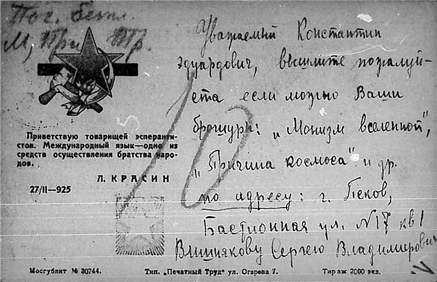 Поч. Безл.
М, При
Приветствую товарищей эсперанти-
стов. Международный язык—одно из
средств осуществления братства наро-
дов.
Л. КРАСИН
27/II—925
Уважаемый Константин
Эдуардович, вышлите пожалуй-
ста если можно Ваши
брошуры: „Монизм вселенной",
„Причина космоса" и др.
по адресу: г. Псков,
Бастионная ул. N17 кв 1
Вишнякову Сергею Владимировичу.
10
Мосгублит № 30744. Тип. „Печатный Труд" ул. Огарева 7. Тираж 2000 экз.